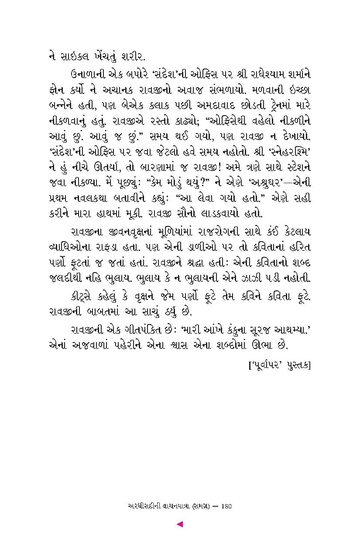 ને સાઇકલ ખેંચતું શરીર.
ઉનાળાની એક બપોરે 'સંદેશ'ની ઓફિસ પર શ્રી રાધેશ્યામ શર્માને
ફોન કર્યો ને અચાનક રાવજીનો અવાજ સંભળાયો. મળવાની ઇચ્છા
બન્નેને હતી, પણ બેએક કલાક પછી અમદાવાદ છોડતી ટ્રેનમાં મારે
નીકળવાનું હતું. રાવજીએ રસ્તો કાઢ્યો; “ઓફિસેથી વહેલો નીકળીને
આવું છું. આવું જ છું.” સમય થઈ ગયો, પણ રાવજી ન દેખાયો.
'સંદેશ'ની ઓફિસ પર જવા જેટલો હવે સમય નહોતો. શ્રી 'સ્નેહરશ્મિ'
ને હું નીચે ઊતર્યા, તો બારણામાં જ રાવજી! અમે ત્રણે સાથે સ્ટેશને
જવા નીકળ્યા. મેં પૂછ્યું: “કેમ મોડું થયું?” ને એણે 'અશ્રુઘર'—એની
પ્રથમ નવલકથા બતાવીને કહ્યું: “આ લેવા ગયો હતો.” એણે સહી
કરીને મારા હાથમાં મૂકી. રાવજી સૌનો લાડકવાયો હતો.
રાવજીના જીવનવૃક્ષનાં મૂળિયાંમાં રાજરોગની સાથે કંઈ કેટલાય
વ્યાધિઓના રાફડા હતા. પણ એની ડાળીઓ પર તો કવિતાનાં હરિત
પર્ણો ફૂટતાં જ જતાં હતાં. રાવજીને શ્રદ્ધા હતી: એની કવિતાનો શબ્દ
જલદીથી નહિ ભુલાય. ભુલાય કે ન ભુલાયની એને ઝાઝી પડી નહોતી.
કીટ્સે કહેલું કે વૃક્ષને જેમ પર્ણો ફૂટે તેમ કવિને કવિતા ફૂટે.
રાવજીની બાબતમાં આ સાચું ઠર્યું છે.
રાવજીની એક ગીતપંક્તિ છે: 'મારી આંખે કંકુના સૂરજ આથમ્યા.'
એનાં અજવાળાં પહેરીને એના શ્વાસ એના શબ્દોમાં ઊભા છે.
['પૂર્વાપર' પુસ્તક]
અરધીસદીની વાચનયાત્રા (સમગ્ર) — 180